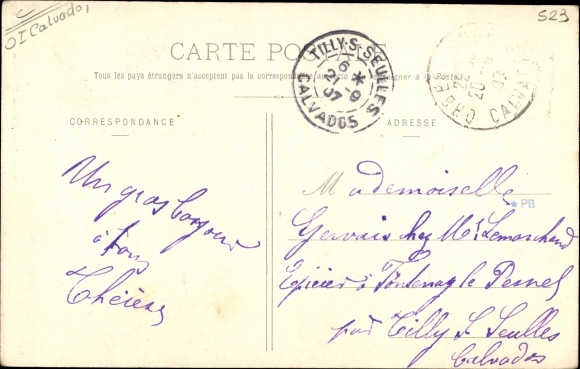 OI Calvados
523
CARTE POSTALE
Tous les pays étrangers n'acceptent pas la correspondance au recto se renseigner à la Poste
TILLY-S-SEULLES
6 *
21-9
07
CALVADOS
20
07
CALVADOS
CORRESPONDANCE
ADRESSE
Un gros bonjour
à tous
Thérèse
Mademoiselle
* PB
Gervais chez Mr Lemarchand
Epicier à Fontenay le Pesnel
par Tilly S Seulles
Calvados